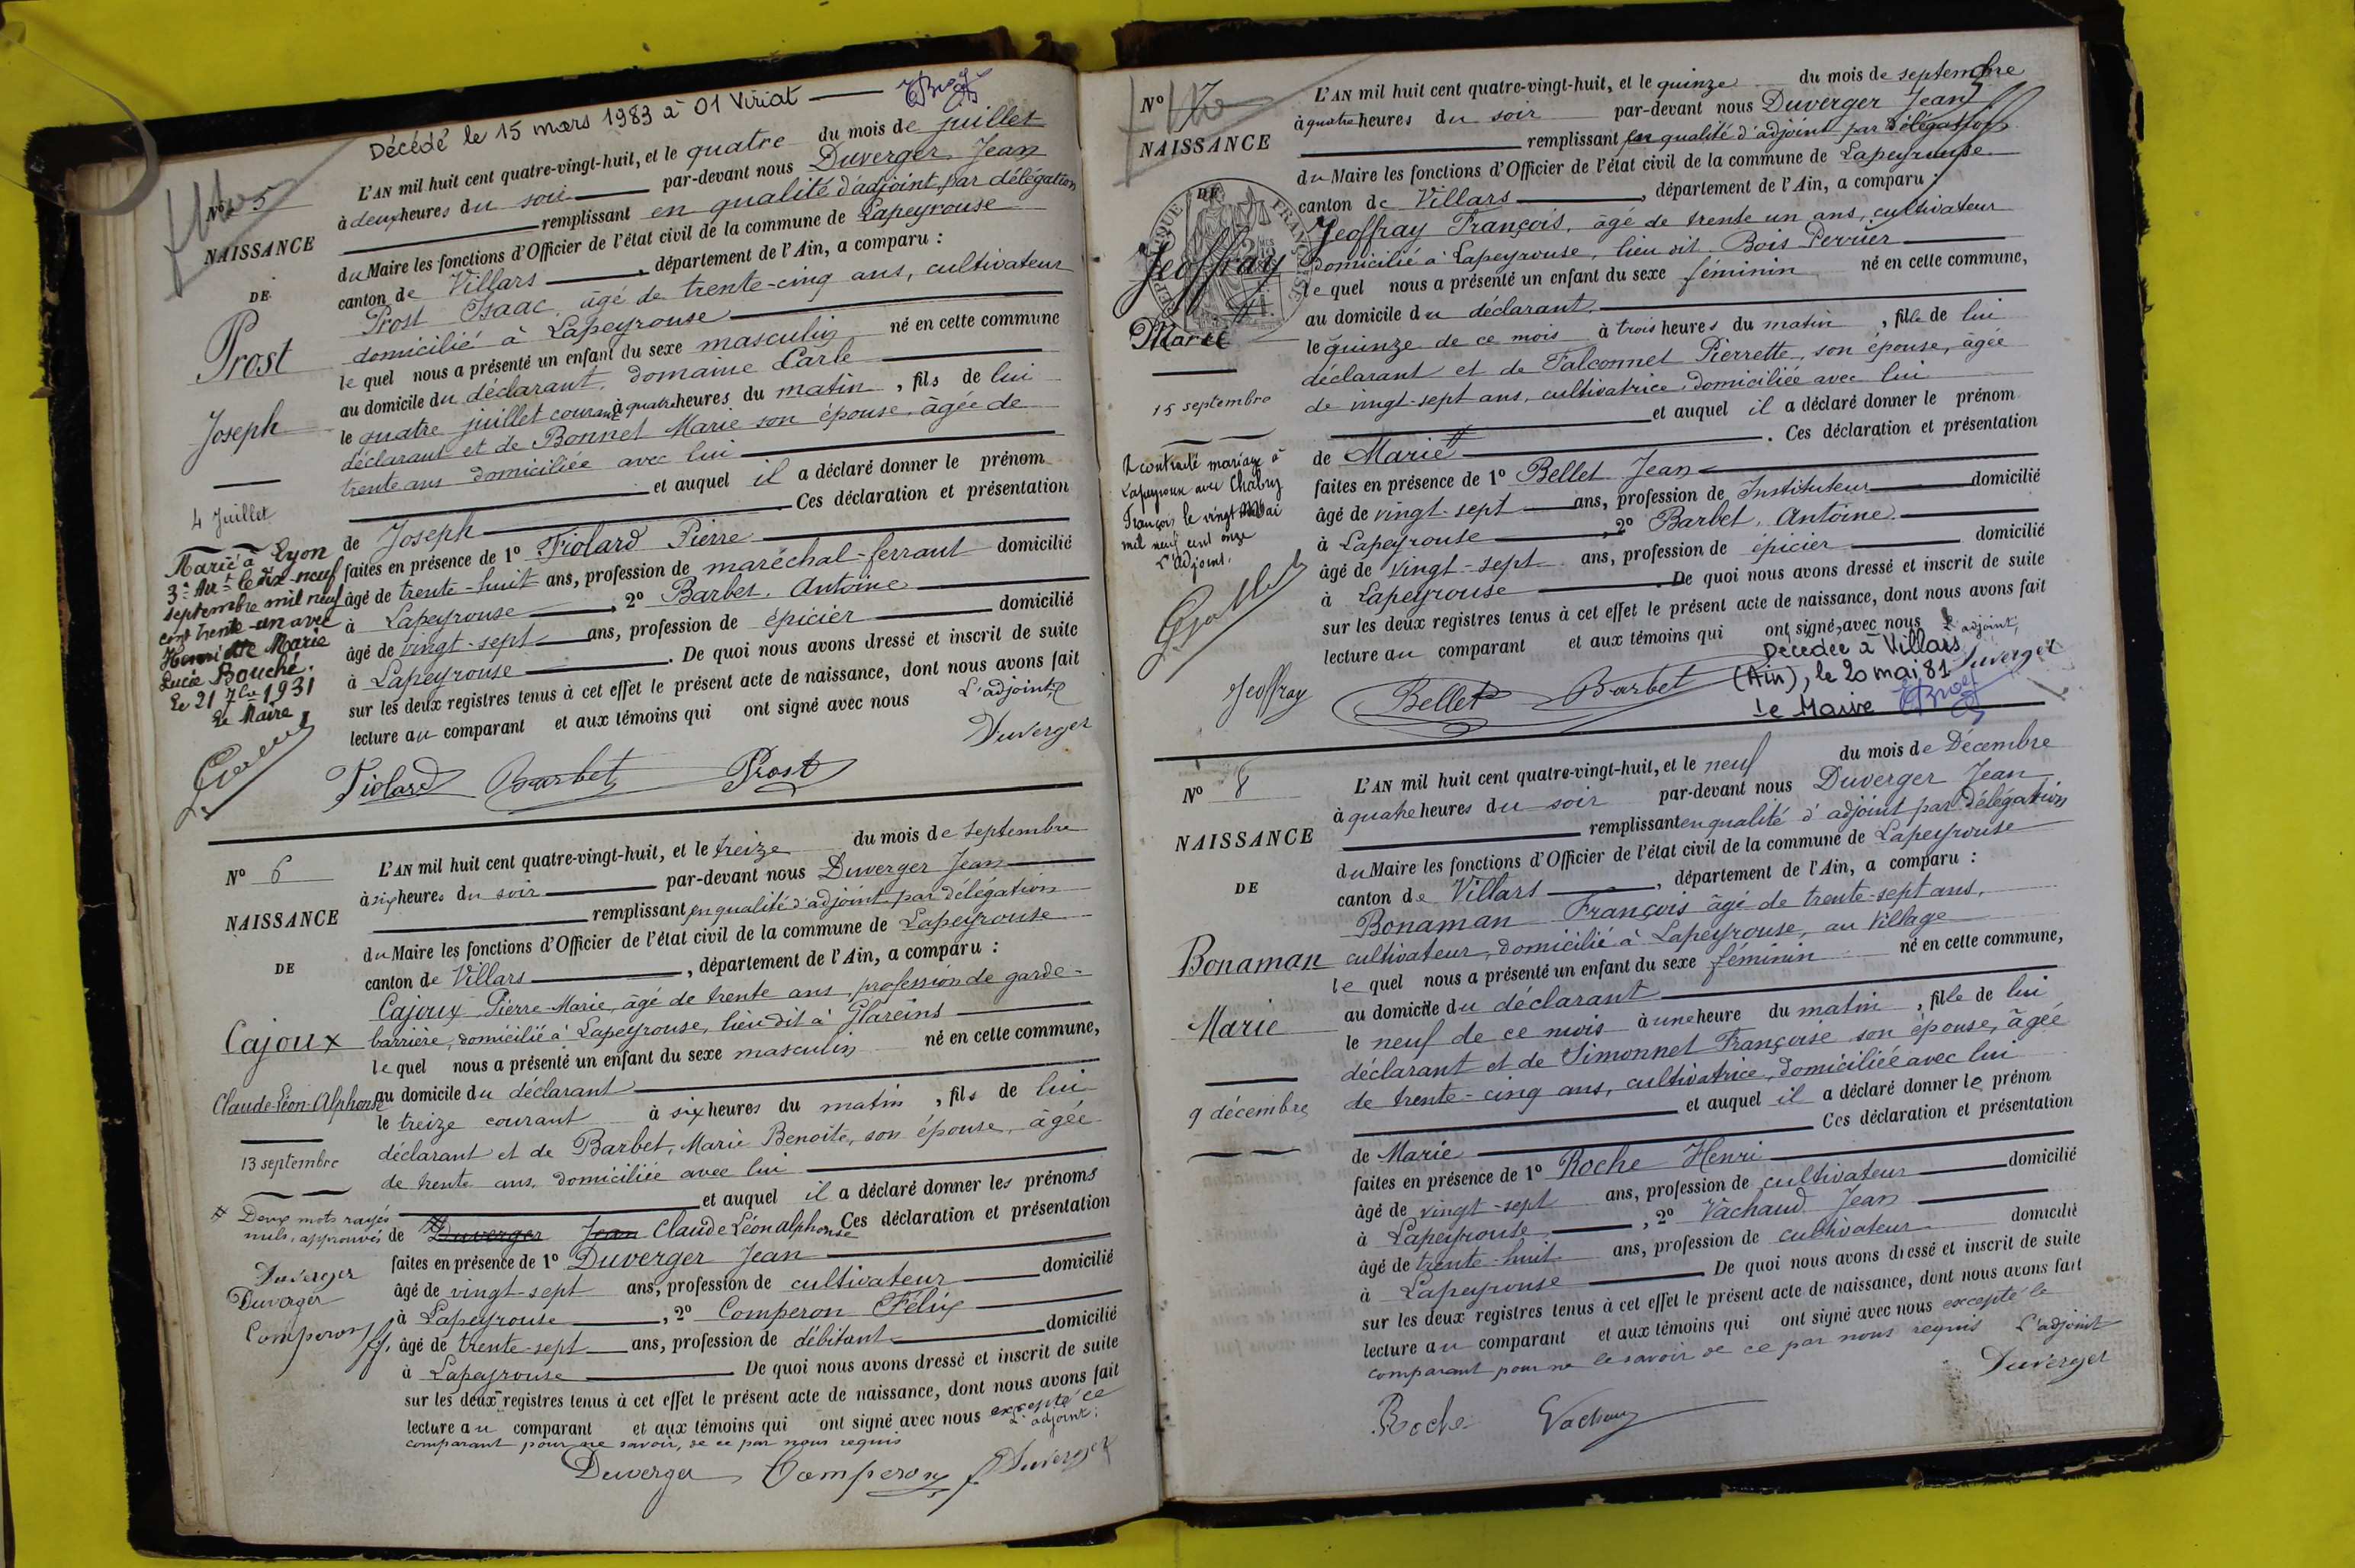 Décédé le 15 mars 1983 à 01 Viriat
N° 5
NAISSANCE
DE
Prost
Joseph
4 Juillet
Marié à Lyon
3e Art le dix-neuf
septembre mil neuf
cent trente-un avec
Henriette Marie
Lucie Bouché.
Le 21 7bre 1931
Le Maire
L'AN mil huit cent quatre-vingt-huit, et le quatre du mois de juillet
à deux heures du soir par-devant nous Duverger Jean
remplissant en qualité d'adjoint par délégation
du Maire les fonctions d'Officier de l'état civil de la commune de Lapeyrouse
canton de Villars, département de l'Ain, a comparu :
Prost Isaac, âgé de trente-cinq ans, cultivateur
domicilié à Lapeyrouse
lequel nous a présenté un enfant du sexe masculin né en cette commune
au domicile du déclarant, domaine Carle
le quatre juillet courant à quatre heures du matin, fils de lui
déclarant et de Bonnet Marie son épouse, âgée de
trente ans domiciliée avec lui
et auquel il a déclaré donner le prénom
de Joseph. Ces déclaration et présentation
faites en présence de 1° Fiolard Pierre
âgé de trente-huit ans, profession de maréchal-ferrant domicilié
à Lapeyrouse, 2° Barbet, Antoine
âgé de vingt-sept ans, profession de épicier domicilié
à Lapeyrouse. De quoi nous avons dressé et inscrit de suite
sur les deux registres tenus à cet effet le présent acte de naissance, dont nous avons fait
lecture au comparant et aux témoins qui ont signé avec nous L'adjoint
Duverger
Fiolard Barbet Prost
N° 6
NAISSANCE
DE
Cajoux
Claude-Léon-Alphonse
13 septembre
# Deux mots rayés
nuls, approuvés
Duverger
Duverger
Comperon
L'AN mil huit cent quatre-vingt-huit, et le treize du mois de septembre
à six heures du soir par-devant nous Duverger Jean
remplissant en qualité d'adjoint par délégation
du Maire les fonctions d'Officier de l'état civil de la commune de Lapeyrouse
canton de Villars, département de l'Ain, a comparu :
Cajoux Pierre-Marie, âgé de trente ans, profession de garde-
barrière, domicilié à Lapeyrouse, lieu dit à Glareins
lequel nous a présenté un enfant du sexe masculin né en cette commune,
au domicile du déclarant
le treize courant à six heures du matin, fils de lui
déclarant et de Barbet, Marie Benoite, son épouse, âgée
de trente ans, domiciliée avec lui
et auquel il a déclaré donner les prénoms
de # Duverger Jean Claude Léon alphonse. Ces déclaration et présentation
faites en présence de 1° Duverger Jean
âgé de vingt-sept ans, profession de cultivateur domicilié
à Lapeyrouse, 2° Comperon Félix
âgé de trente-sept ans, profession de débitant domicilié
à Lapeyrouse De quoi nous avons dressé et inscrit de suite
sur les deux registres tenus à cet effet le présent acte de naissance, dont nous avons fait
lecture au comparant et aux témoins qui ont signé avec nous excepté ce
comparant pour ne savoir, de ce par nous requis L'adjoint.
Duverger Comperon Duverger
N° 7
NAISSANCE
DE
RÉPUBLIQUE FRANÇAISE
Jeoffray
Marie
15 septembre
A contracté mariage à
Lapeyrouse avec Chabry
François le vingt Mai
mil neuf cent onze
L'adjoint.
L'AN mil huit cent quatre-vingt-huit, et le quinze du mois de septembre
à quatre heures du soir par-devant nous Duverger Jean
remplissant en qualité d'adjoint par délégation
du Maire les fonctions d'Officier de l'état civil de la commune de Lapeyrouse
canton de Villars, département de l'Ain, a comparu :
Jeoffray François, âgé de trente un ans, cultivateur
domicilié à Lapeyrouse, lieu dit Bois Perrier
lequel nous a présenté un enfant du sexe féminin né en cette commune,
au domicile du déclarant
le quinze de ce mois à trois heures du matin, fille de lui
déclarant et de Falconnet Pierrette, son épouse, âgée
de vingt-sept ans, cultivatrice domiciliée avec lui
et auquel il a déclaré donner le prénom
de Marie. Ces déclaration et présentation
faites en présence de 1° Bellet Jean
âgé de vingt-sept ans, profession de Instituteur domicilié
à Lapeyrouse 2° Barbet, Antoine
âgé de vingt-sept ans, profession de épicier domicilié
à Lapeyrouse. De quoi nous avons dressé et inscrit de suite
sur les deux registres tenus à cet effet le présent acte de naissance, dont nous avons fait
lecture au comparant et aux témoins qui ont signé, avec nous L'adjoint,
Duverger
Jeoffray Bellet Barbet
Décédée à Villars
(Ain), le 20 mai 81
Le Maire
N° 8
NAISSANCE
DE
Bonaman
Marie
9 décembre
L'AN mil huit cent quatre-vingt-huit, et le neuf du mois de Décembre
à quatre heures du soir par-devant nous Duverger Jean
remplissant en qualité d'adjoint par délégation
du Maire les fonctions d'Officier de l'état civil de la commune de Lapeyrouse
canton de Villars, département de l'Ain, a comparu :
Bonaman François âgé de trente-sept ans,
cultivateur, domicilié à Lapeyrouse, au Village
lequel nous a présenté un enfant du sexe féminin né en cette commune,
au domicile du déclarant
le neuf de ce mois à une heure du matin, fille de lui
déclarant et de Simonnet Françoise son épouse, âgée
de trente-cinq ans, cultivatrice, domiciliée avec lui
et auquel il a déclaré donner le prénom
de Marie Ces déclaration et présentation
faites en présence de 1° Roche Henri
âgé de vingt-sept ans, profession de cultivateur domicilié
à Lapeyrouse, 2° Vachaud Jean
âgé de trente-huit ans, profession de cultivateur domicilié
à Lapeyrouse De quoi nous avons dressé et inscrit de suite
sur les deux registres tenus à cet effet le présent acte de naissance, dont nous avons fait
lecture au comparant et aux témoins qui ont signé avec nous excepté le
comparant pour ne le savoir de ce par nous requis L'adjoint
Duverger
Roche Vachaud